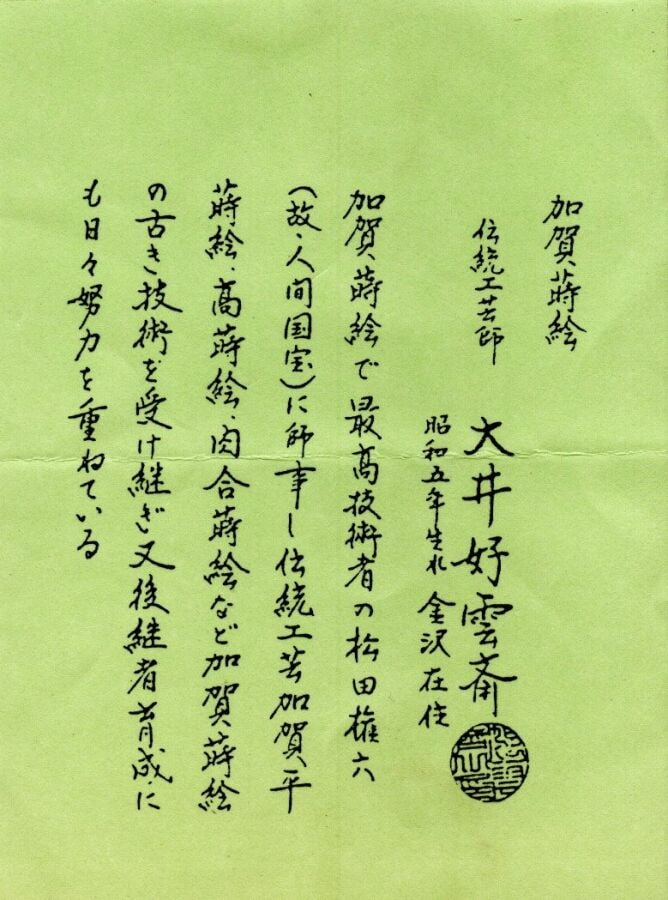 加賀蒔絵
伝統工芸師 大井好雲斎
昭和五年生れ 金沢在住
加賀蒔絵で最高技術者の松田権六
(故・人間国宝)に師事し伝統工芸加賀平
蒔絵、高蒔絵、肉合蒔絵など加賀蒔絵
の古き技術を受け継ぎ又後継者育成に
も日々努力を重ねている